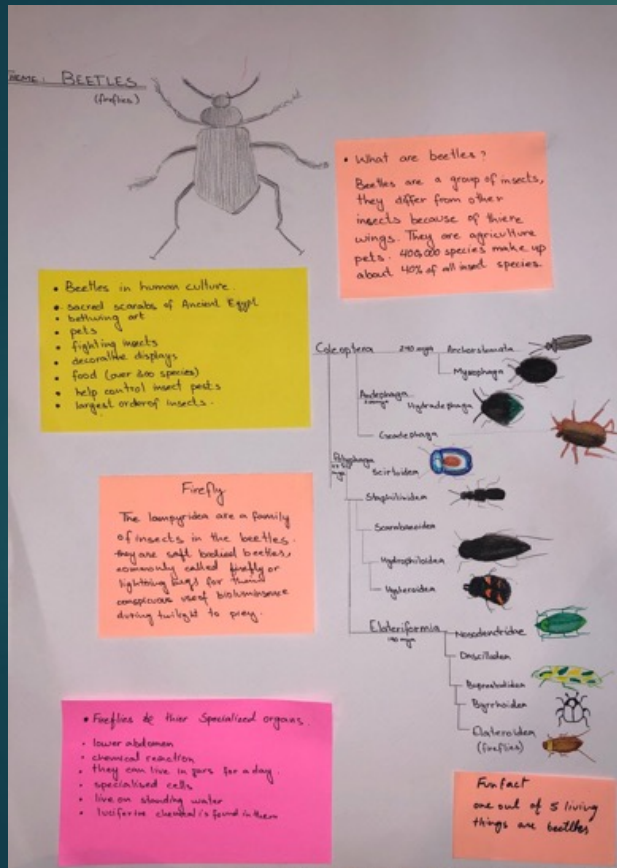 THEME: BEETLES
(fireflies)
• What are beetles?
Beetles are a group of insects,
they differ from other
insects because of thiere
wings. They are agriculture
pets. 400,000 species make up
about 40% of all insect species.
• Beetles in human culture.
• sacred scarabs of Ancient Egypt
• bettwing art
• pets
• fighting insects
• decorative displays
• food (over 300 species)
• help control insect pests
• largest order of insects.
Coleoptera 240 mya Archostemata
Myxophaga
Hydradephaga
Geadephaga
Polyphaga
mya
Scirtoidea
Staphilinidea
Scarabaeoidea
Hydrophiloidea
Hysteroidea
Elateriformia
190 mya
Nosodentridae
Dascilloidea
Byrrhoidea
Elateroidea
(fireflies)
Firefly
The lampyridea are a family
of insects in the beetles.
they are soft bodied beetles,
commonly called firefly or
lightning bugs for their
conspicuous use of bioluminsence
during twilight to prey.
• Fireflies & thier Specialized organs.
• lower abdomen
• chemical reaction
• they can live in jars for a day.
• specialised cells
• live on standing water
• luciferine chemical is found in them
Fun fact
one out of 5 living
things are beetlles